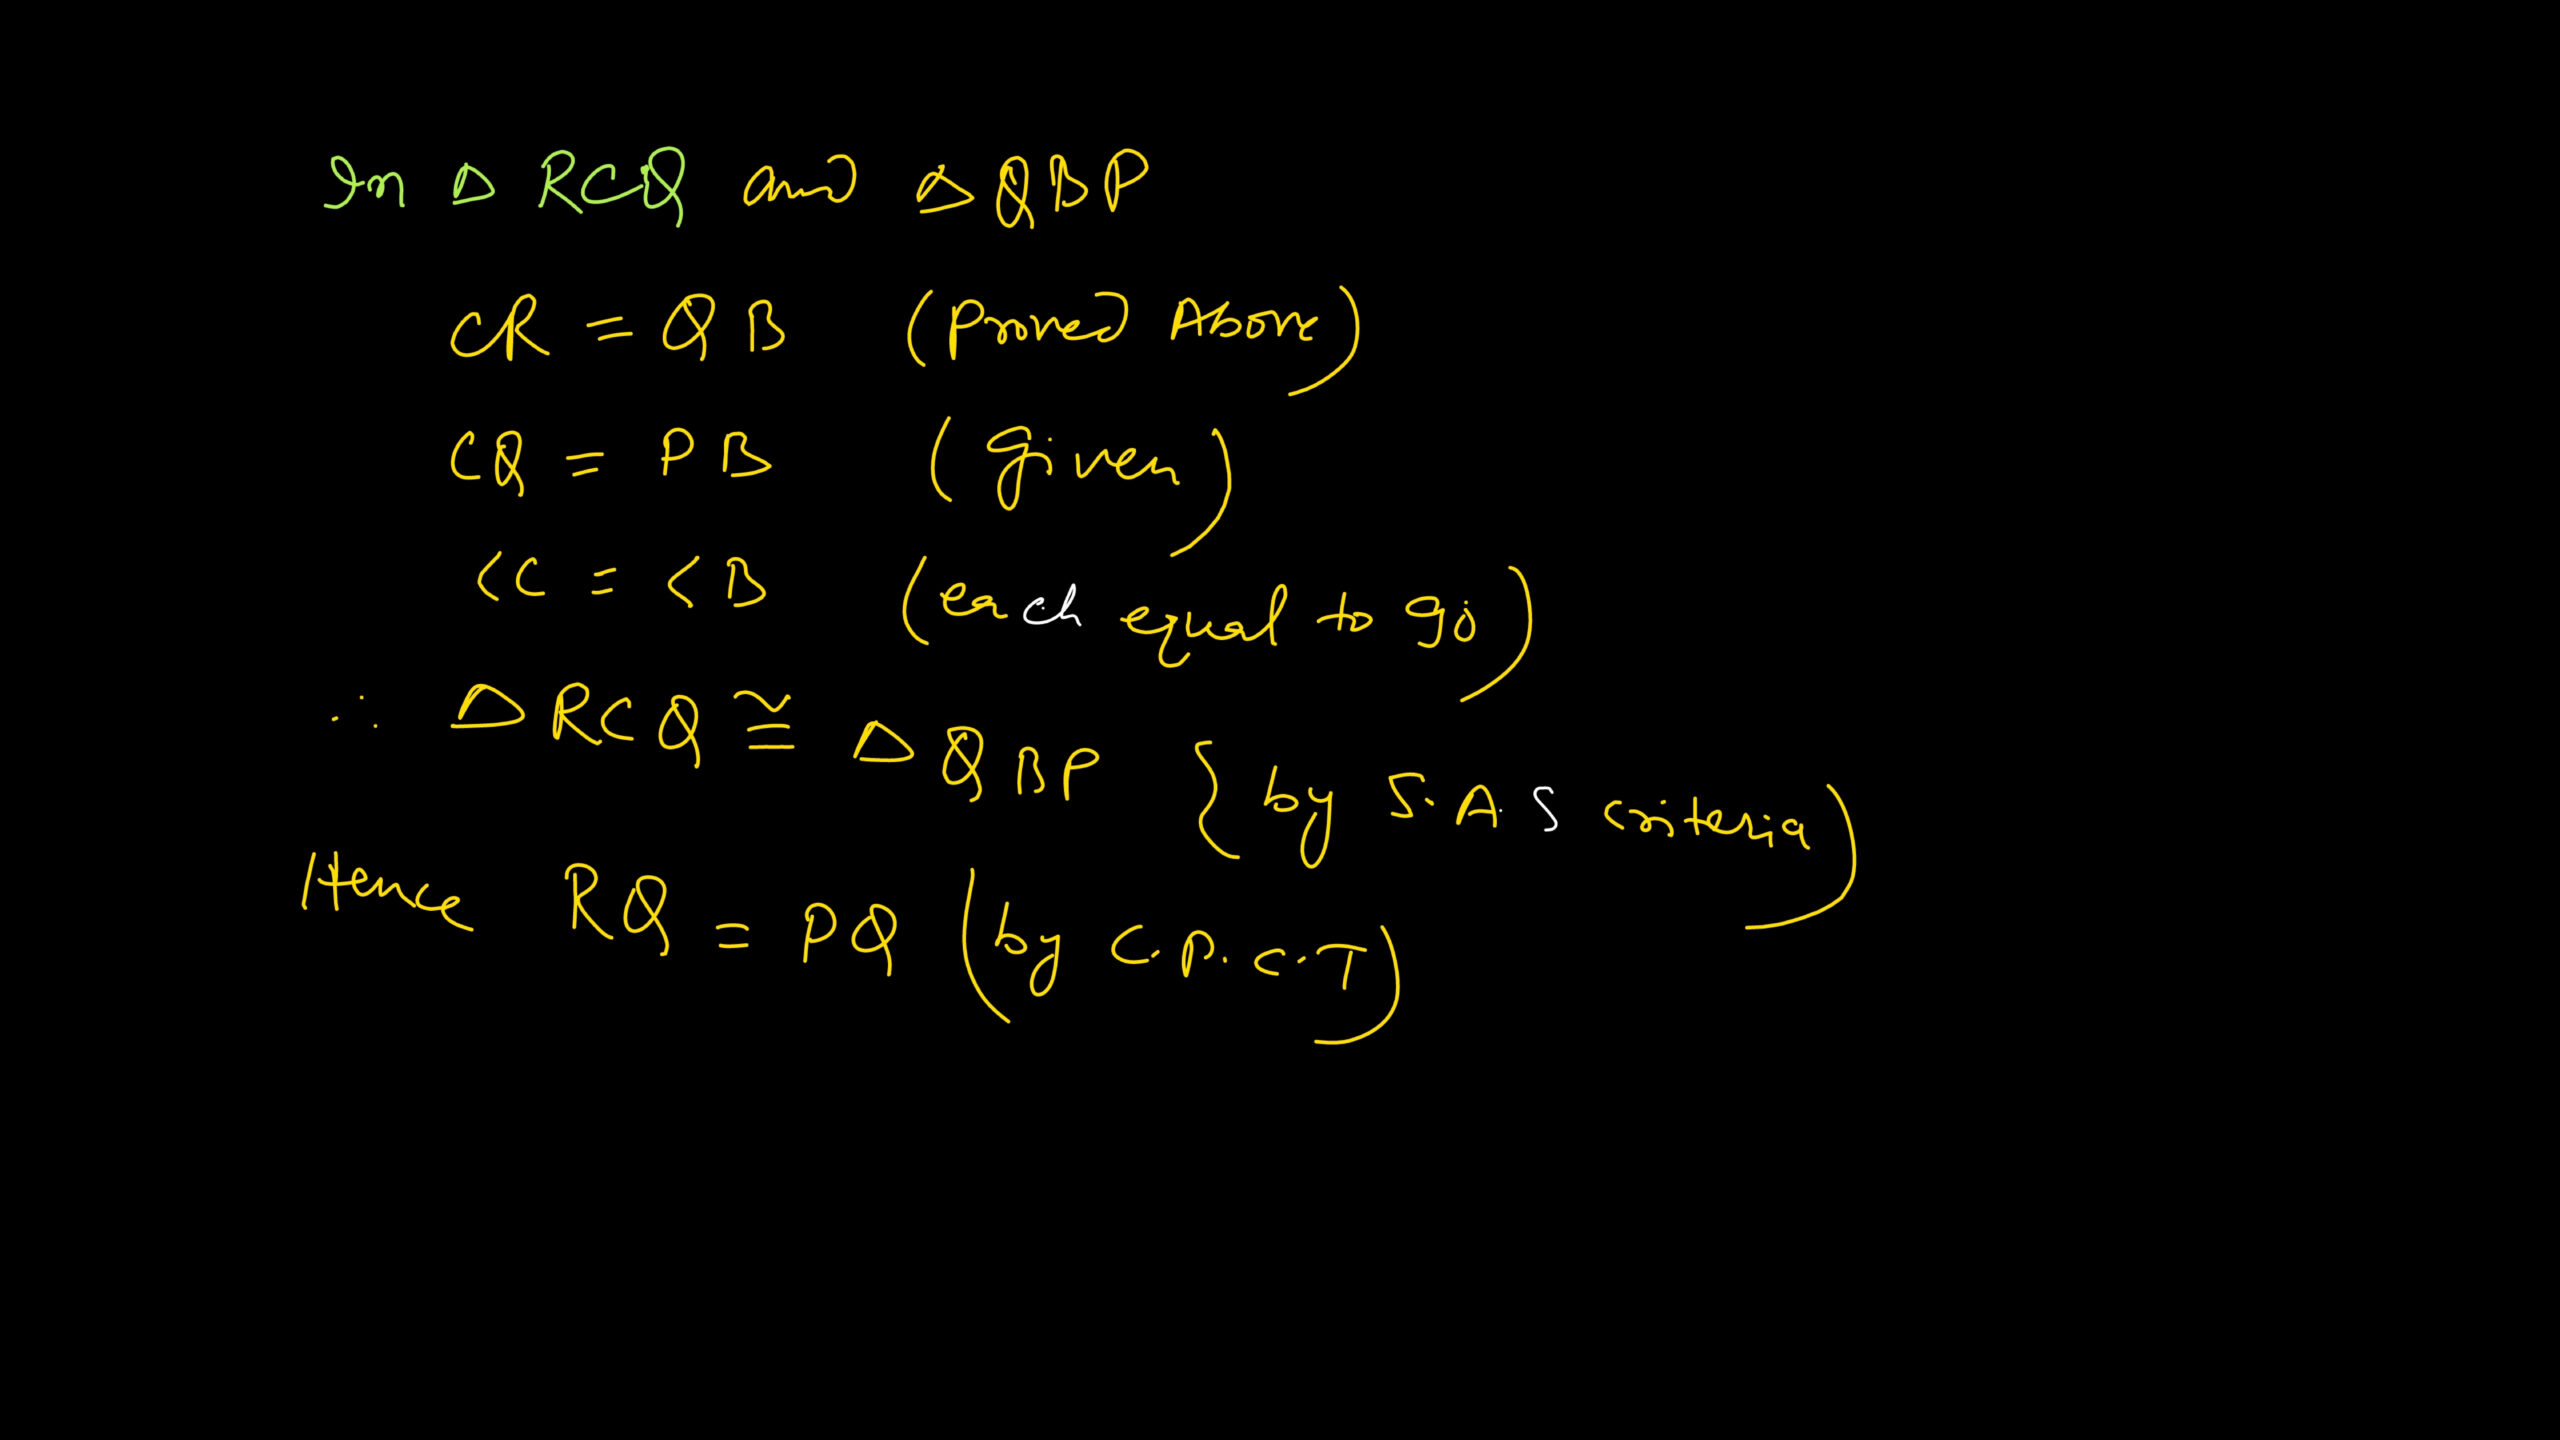 In △ RCQ and △ QBP
CR = QB (Proved Above)
CQ = PB (Given)
<C = <B (each equal to 90)
∴ △RCQ ≅ △QBP {by S.A.S criteria)
Hence RQ = PQ (by C.P.C.T)